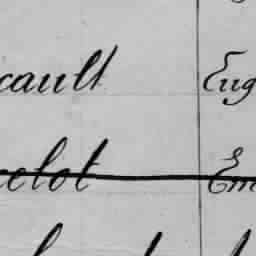 cault Eug
elot Em